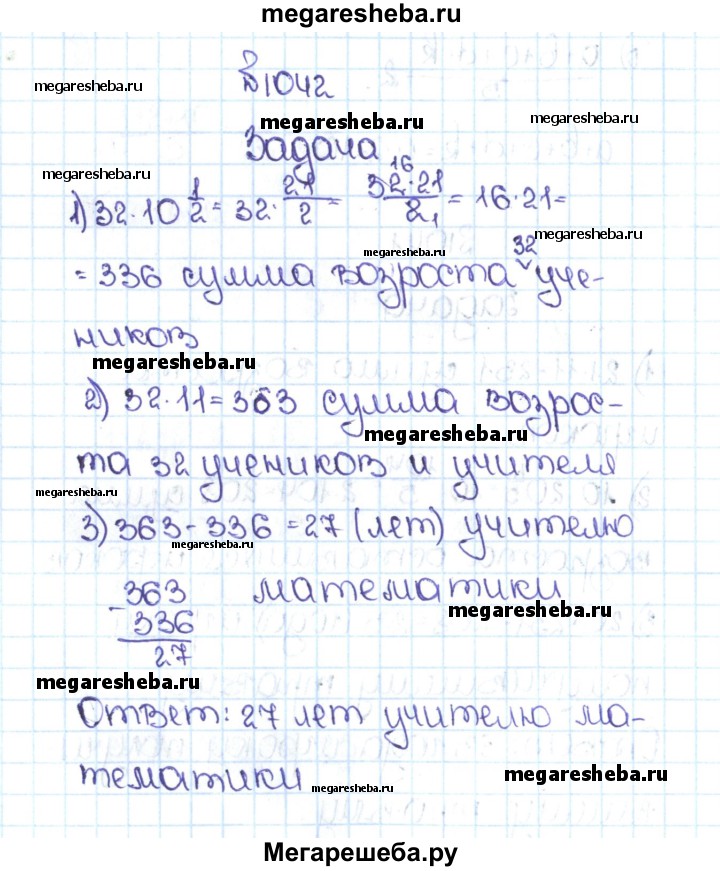 megaresheba.ru
№1042
megaresheba.ru
megaresheba.ru
megaresheba.ru
Задача
megaresheba.ru
1) 32·10 1/2 = 32· 21/2 = 32·21/2 = 16·21=
16
1
megaresheba.ru
32
= 336 сумма возроста ˅ уче-
ников
megaresheba.ru
2) 32·11=363 сумма возрос-
megaresheba.ru
та 32 учеников и учителя
megaresheba.ru
3) 363-336=27 (лет) учителю
megaresheba.ru
363 математики
- 336
megaresheba.ru
27
megaresheba.ru
Ответ: 27 лет учителю ма-
тематики
megaresheba.ru
megaresheba.ru
Мегарешеба.ру